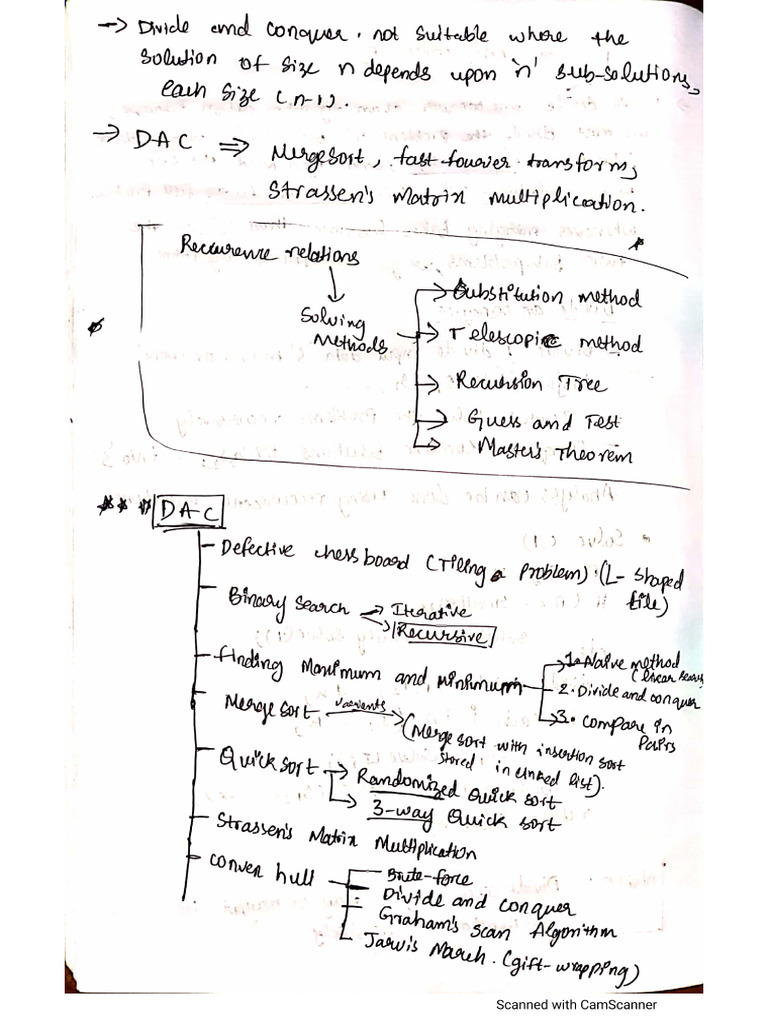 → Divide and conquer. not suitable where the
solution of size n depends upon 'n' sub-solutions,
each size (n-1).
→ DAC ⇒ Mergesort, fast-fourer transform,
Strassen's Matrix Multiplication.
Reccurence relations
Solving Methods
→ Substitution method
→ Telescopic method
→ Recursion Tree
→ Guess and Test
→ Master's Theorem
*** DAC
- Defective chess board (Tiling a Problem). (L- shaped
tile)
Binary search → Iterative
→ Recursive
- finding Maximum and minimum
→ 1. Naive method
(linear search
→ 2. Divide and conquer
→ 3. Compare in
Pairs
- Merge sort varients → (Merge sort with insertion sort
stored in linked list).
- Quick sort → Randomized Quick sort
→ 3-way Quick sort
- Strassen's Matrix Multiplication
- Conven hull
- Brute-force
- Divide and conquer
- Graham's Scan Algorithm
- Jarvis March. (gift-wrapping)
Scanned with CamScanner